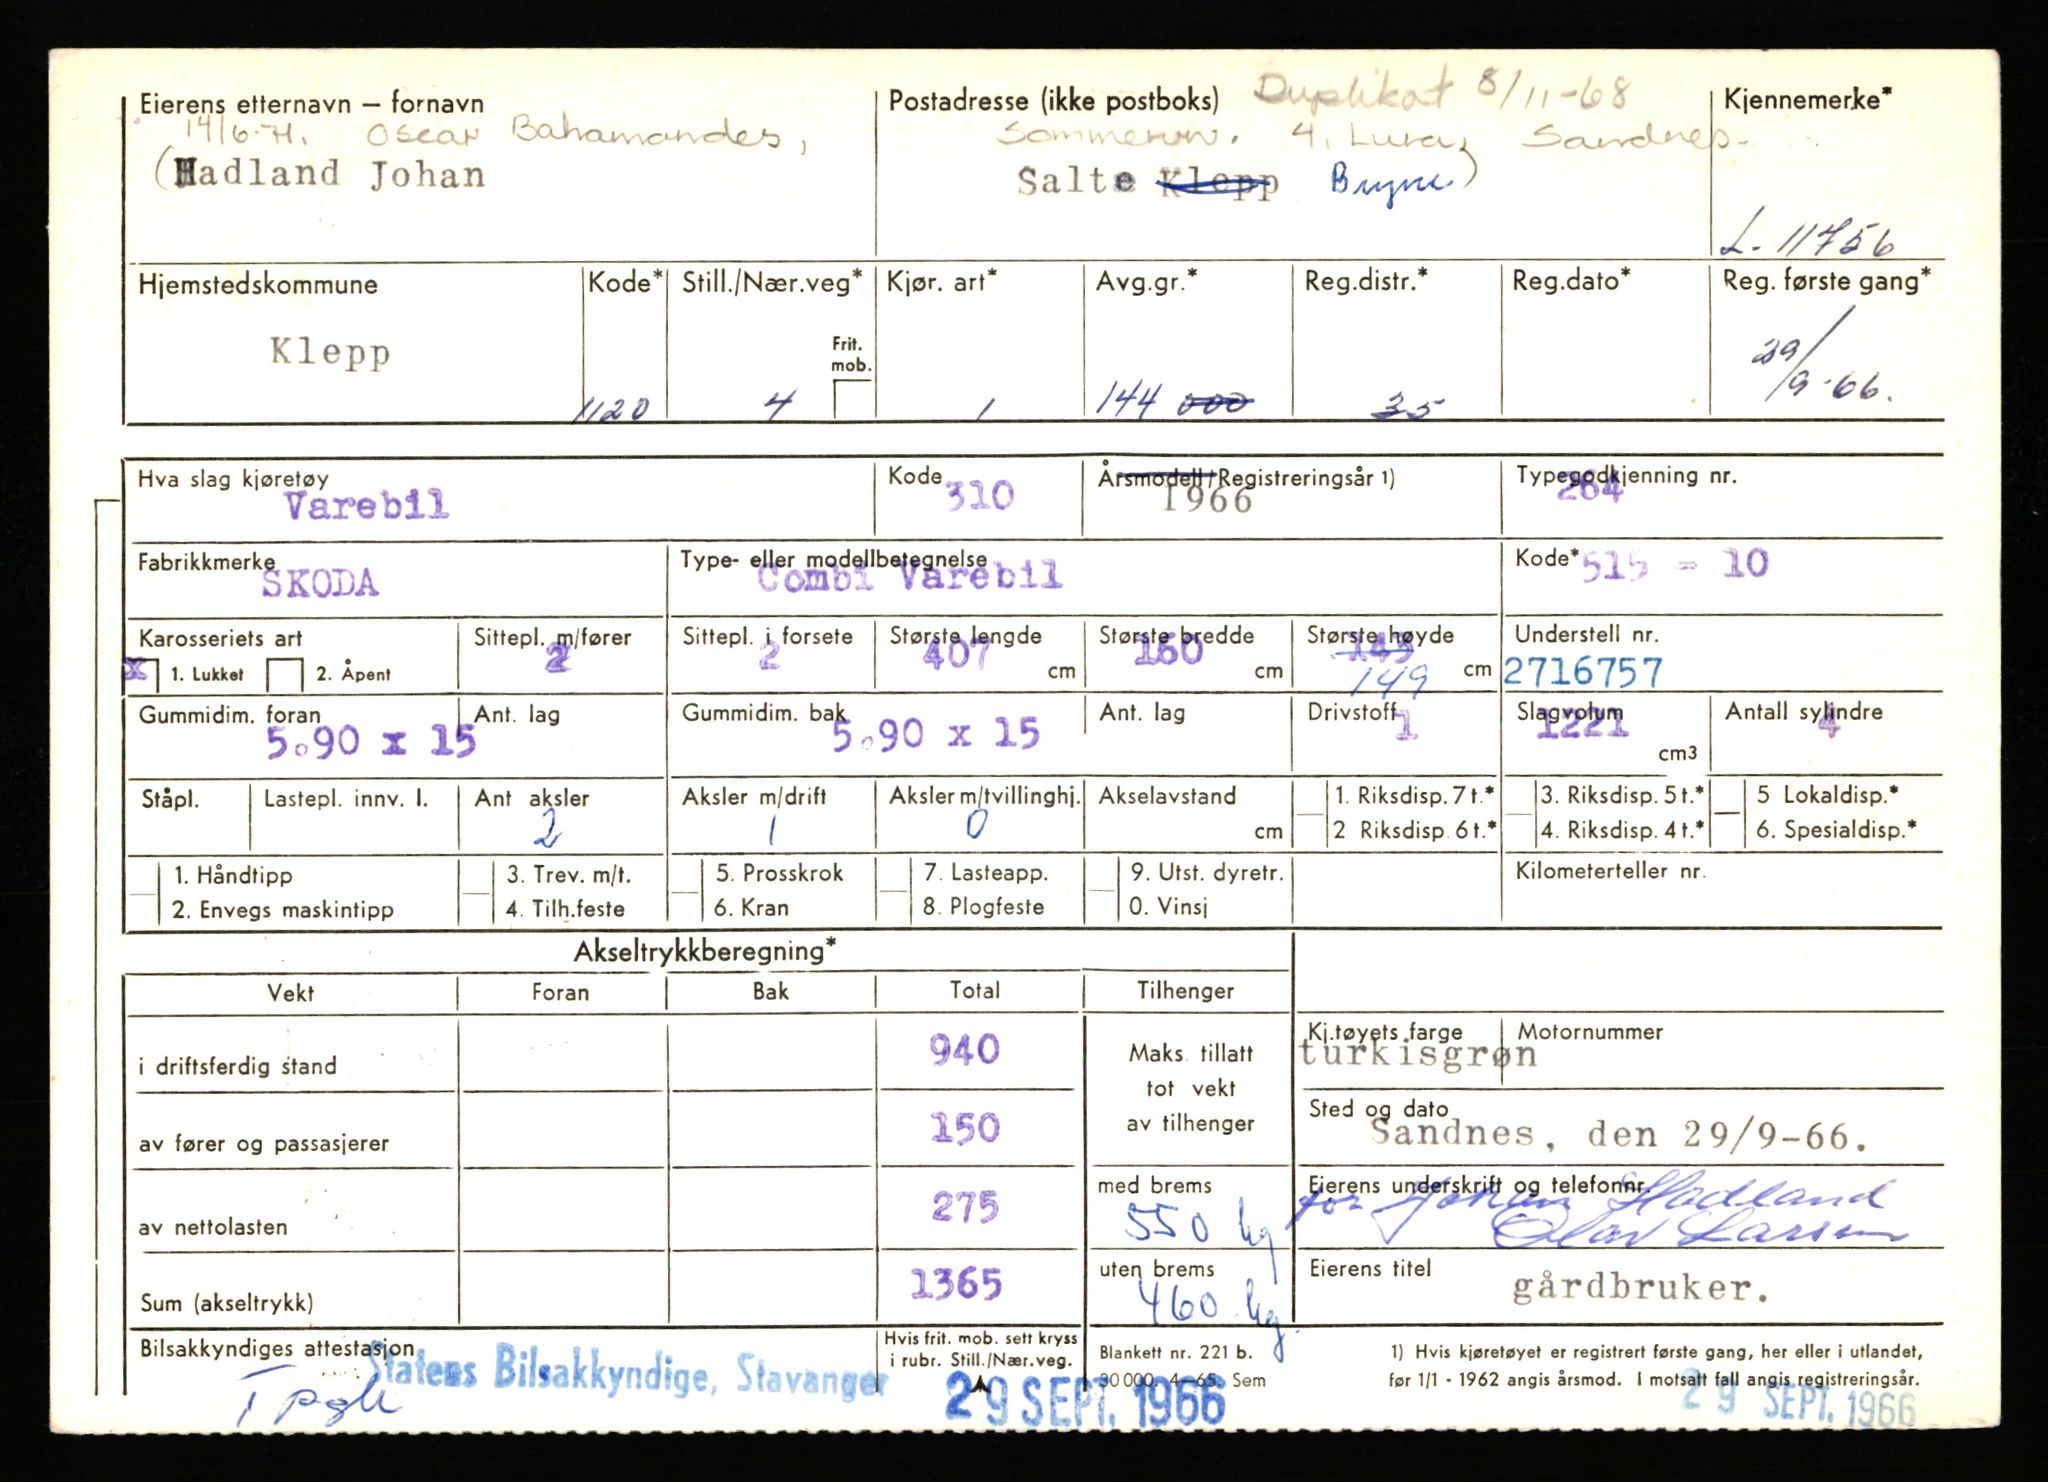 Eierens etternavn – fornavn
Postadresse (ikke postboks) Duplikat 8/11-68
Kjennemerke*
14/6-71. Oscar Bahamondes,
Sommervn. 4, Lura, Sandnes.
(Hadland Johan
Salte Klepp Bryne)
L-11756
Hjemstedskommune
Kode*
Still./Nær.veg*
Kjør. art*
Avg.gr.*
Reg.distr.*
Reg.dato*
Reg. første gang*
Klepp
1120
4
Frit. mob.
1
144 000
35
29/9-66.
Hva slag kjøretøy
Varebil
Kode
310
Årsmodell/Registreringsår 1)
1966
Typegodkjenning nr.
264
Fabrikkmerke
SKODA
Type- eller modellbetegnelse
Combi Varebil
Kode*
515 - 10
Karosseriets art
x 1. Lukket 2. Åpent
Sittepl. m/fører
2
Sittepl. i forsete
2
Største lengde
407 cm
Største bredde
160 cm
Største høyde
143
149 cm
Understell nr.
2716757
Gummidim. foran
5.90 x 15
Ant. lag
Gummidim. bak
5.90 x 15
Ant. lag
Drivstoff
1
Slagvolum
1221 cm3
Antall sylindre
4
Ståpl.
Lastepl. innv. l.
Ant aksler
2
Aksler m/drift
1
Aksler m/tvillinghj.
0
Akselavstand
cm
1. Riksdisp. 7 t.*
2 Riksdisp. 6 t.*
3. Riksdisp. 5 t.*
4. Riksdisp. 4 t.*
5 Lokaldisp.*
6. Spesialdisp.*
1. Håndtipp
2. Envegs maskintipp
3. Trev. m/t.
4. Tilh.feste
5. Prosskrok
6. Kran
7. Lasteapp.
8. Plogfeste
9. Utst. dyretr.
0. Vinsj
Kilometerteller nr.
Akseltrykkberegning*
Vekt
Foran
Bak
Total
Tilhenger
i driftsferdig stand
940
av fører og passasjerer
150
av nettolasten
275
Sum (akseltrykk)
1365
Maks. tillatt
tot vekt
av tilhenger
med brems
550 kg
uten brems
460 kg.
Kj.tøyets farge
turkisgrøn
Motornummer
Sted og dato
Sandnes, den 29/9-66.
Eierens underskrift og telefonnr.
for Johan Hadland
Olav Larsen
Eierens titel
gårdbruker.
Bilsakkyndiges attestasjon
Statens Bilsakkyndige, Stavanger
Hvis frit. mob. sett kryss
i rubr. Still./Nær.veg.
29 SEPT. 1966
Blankett nr. 221 b.
30 000. 4-65. Sem
1) Hvis kjøretøyet er registrert første gang, her eller i utlandet,
før 1/1 - 1962 angis årsmod. I motsatt fall angis registreringsår.
29 SEPT. 1966